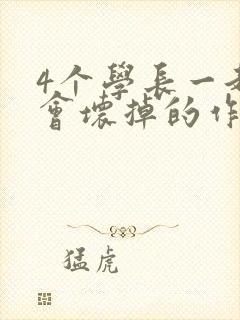 4个學長一
會壞掉的作
猛虎